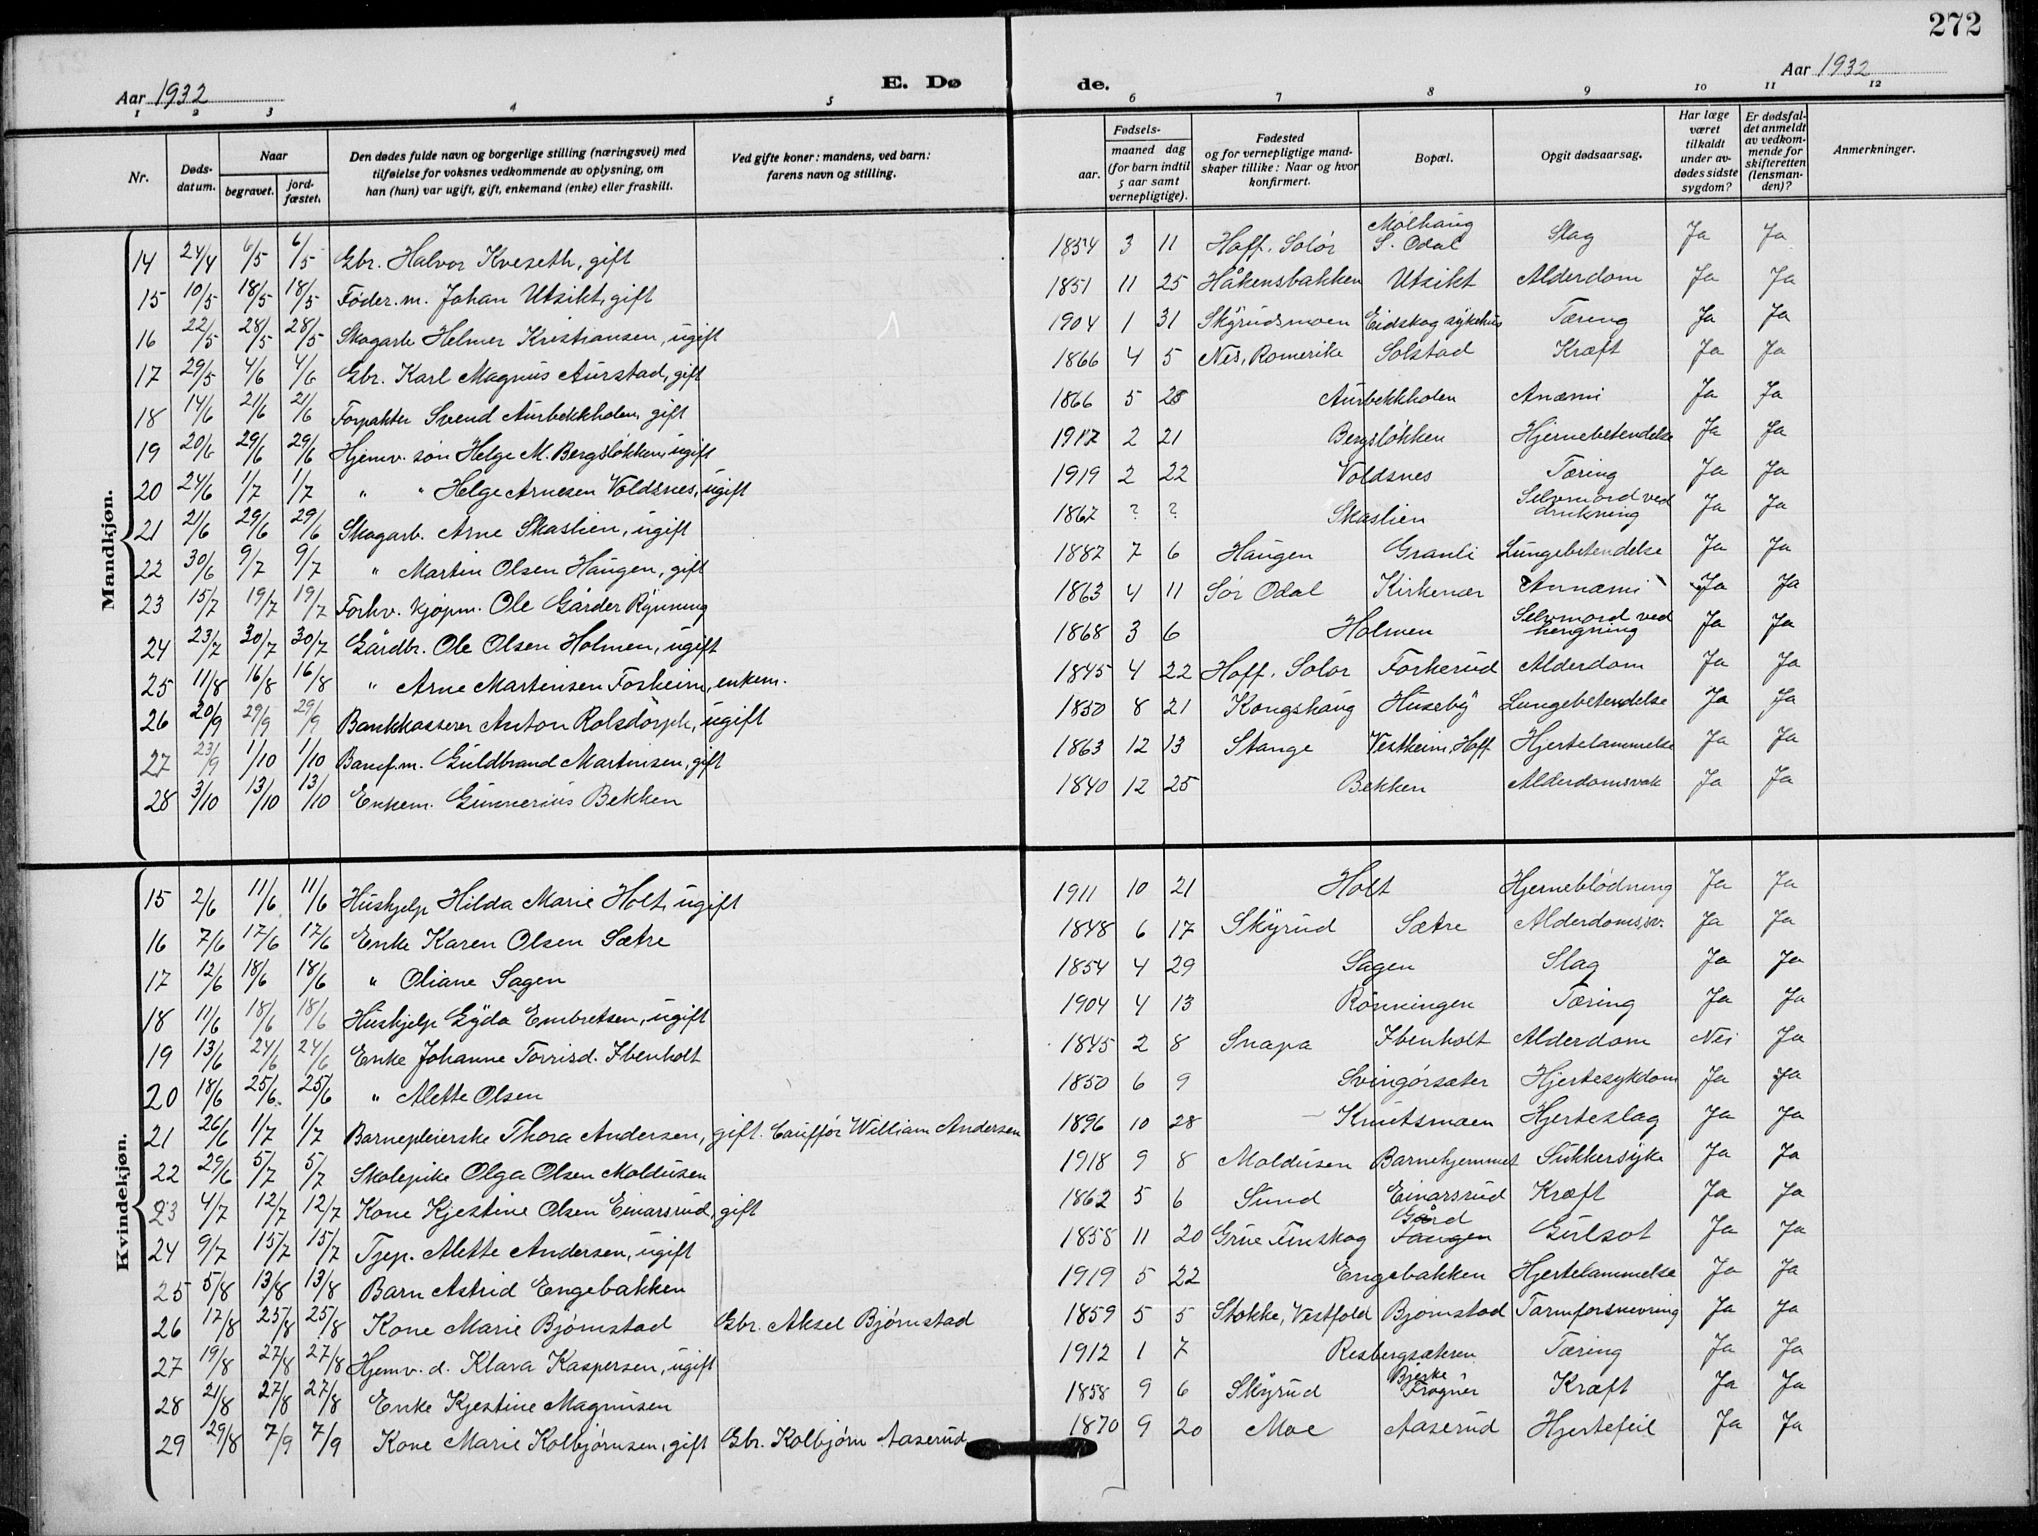 272
Aar 1932 E. Dø de. Aar 1932
1 2 3 4 5 6 7 8 9 10 11 12
Nr. Døds-datum. Naar begravet. jord-fæstet. Den dødes fulde navn og borgerlige stilling (næringsvei) med tilføielse for voksnes vedkommende av oplysning, om han (hun) var ugift, gift, enkemand (enke) eller fraskilt. Ved gifte koner: mandens, ved barn: farens navn og stilling. Fødsels- aar. maaned dag (for barn indtil 5 aar samt vernepligtige). Fødested og for vernepligtige mand-skaper tillike: Naar og hvor konfirmert. Bopæl. Opgit dødsaarsag. Har læge været tilkaldt under av-dødes sidste sygdom? Er dødsfal-det anmeldt av vedkom-mende for skifteretten (lensman-den)? Anmerkninger.
Mandkjøn.
14 24/4 6/5 6/5 Gbr. Halvor Kveseth, gift 1854 3 11 Hoff. Solør Mølhaug S. Odal Slag Ja Ja
15 10/5 18/5 18/5 Føder.m. Johan Utsikt, gift 1851 11 25 Håkensbakken Utsikt Alderdom Ja Ja
16 22/5 28/5 28/5 Skogarb Helmer Kristiansen, ugift 1904 1 31 Skyrudsmoen Eidskog sykehus Tæring Ja Ja
17 29/5 4/6 4/6 Gbr. Karl Magnus Aurstad, gift 1866 4 5 Nes, Romerike Solstad Kræft Ja Ja
18 14/6 21/6 21/6 Forpakter Svend Aurbekkholen, gift 1866 5 28 Aurbekkholen Anæmi Ja Ja
19 20/6 29/6 29/6 Hjemv. søn Helge M. Bergsløkken, ugift 1917 2 21 Bergsløkken Hjernebetendelse Ja Ja
20 24/6 1/7 1/7 " " Helge Arnesen Voldsnes, ugift 1919 2 22 Voldsnes Tæring Ja Ja
21 21/6 29/6 29/6 Skogarb. Arne Skaslien, ugift 1867 ? ? Skaslien Selvmord ved drukning Ja Ja
22 30/6 9/7 9/7 " Martin Olsen Haugen, gift 1887 7 6 Haugen Granli Lungebetendelse Ja Ja
23 15/7 19/7 19/7 Forhv. kjøpm. Ole Gårder Rynning 1863 4 11 Sør Odal Kirkenær Annæmi Ja Ja
24 23/7 30/7 30/7 Gårdbr. Ole Olsen Holmen, ugift 1868 3 6 Holmen Selvmord ved hengning Ja Ja
25 11/8 16/8 16/8 " Arne Martinsen Forheim, enkem. 1845 4 22 Hoff. Solør Forkerud Alderdom Ja Ja
26 20/9 29/9 29/9 Bankkasserer Anton Rolsdorph, ugift 1850 8 21 Kongshaug Huseby Lungebetendelse Ja Ja
27 23/9 1/10 1/10 Banef.m. Guldbrand Martinsen, gift 1863 12 13 Stange Vestheim, Hoff Hjertelammelse Ja Ja
28 3/10 13/10 13/10 Enkem. Gunnerius Bekken 1840 12 25 Bekken Alderdomsvak Ja Ja
Kvindekjøn.
15 2/6 11/6 11/6 Hushjelp Hilda Marie Holt, ugift 1911 10 21 Holt Hjerneblødning Ja Ja
16 7/6 17/6 17/6 Enke Karen Olsen Sætre 1848 6 17 Skyrud Sætre Alderdomssv. Ja Ja
17 12/6 18/6 18/6 " Oliane Sagen 1854 4 29 Sagen Slag Ja Ja
18 11/6 18/6 18/6 Hushjelp Gyda Embretsen, ugift 1904 4 13 Rønningen Tæring Ja Ja
19 13/6 24/6 24/6 Enke Johanne Torrisd. Ibenholt 1845 2 8 Snapa Ibenholt Alderdom Nei Ja
20 18/6 25/6 25/6 " Alette Olsen 1850 6 9 Svingørsæter Hjertesykdom Ja Ja
21 26/6 1/7 1/7 Barnepleierske Thora Andersen, gift. Cauffør William Andersen 1896 10 28 Knutsmoen Hjerteslag Ja Ja
22 29/6 5/7 5/7 Skolepike Olga Olsen Moldusen 1918 9 8 Moldusen Barnehjemmet Sukkersyke Ja Ja
23 4/7 12/7 12/7 Kone Kjestine Olsen Einarsrud, gift 1862 5 6 Sund Einarsrud Kræft Ja Ja
24 9/7 15/7 15/7 Tjep. Alette Andersen, ugift 1858 11 20 Grue Finskog Gård Tangen Gulsot Ja Ja
25 5/8 13/8 13/8 Barn Astrid Engebakken 1919 5 22 Engebakken Hjertelammelse Ja Ja
26 17/8 25/8 25/8 Kone Marie Bjørnstad Gbr. Aksel Bjørnstad 1859 5 5 Stokke, Vestfold Bjørnstad Tarmforsnevring Ja Ja
27 19/8 27/8 27/8 Hjemv. d. Klara Kaspersen, ugift 1912 1 7 Resbergsæteren Tæring Ja Ja
28 21/8 27/8 27/8 Enke Kjestine Magnusen 1858 9 6 Skyrud Bjerke Frogner Kræft Ja Ja
29 29/8 7/9 7/9 Kone Marie Kolbjørnsen, gift Gbr. Kolbjørn Aaserud 1870 9 20 Moe Aaserud Hjertefeil Ja Ja